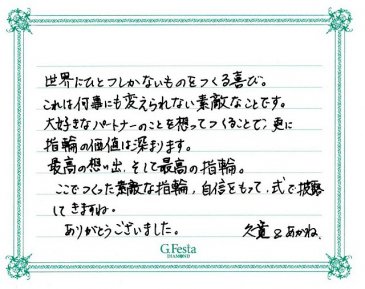 世界にひとつしかないものをつくる喜び。
これは何事にも変えられない素敵なことです。
大好きなパートナーのことを想ってつくることで、更に
指輪の価値は深まります。
最高の想い出、そして最高の指輪。
ここでつくった素敵な指輪、自信をもって、式で披露
してきますね。
ありがとうございました。 久寛 & あかね
G.Festa
DIAMOND